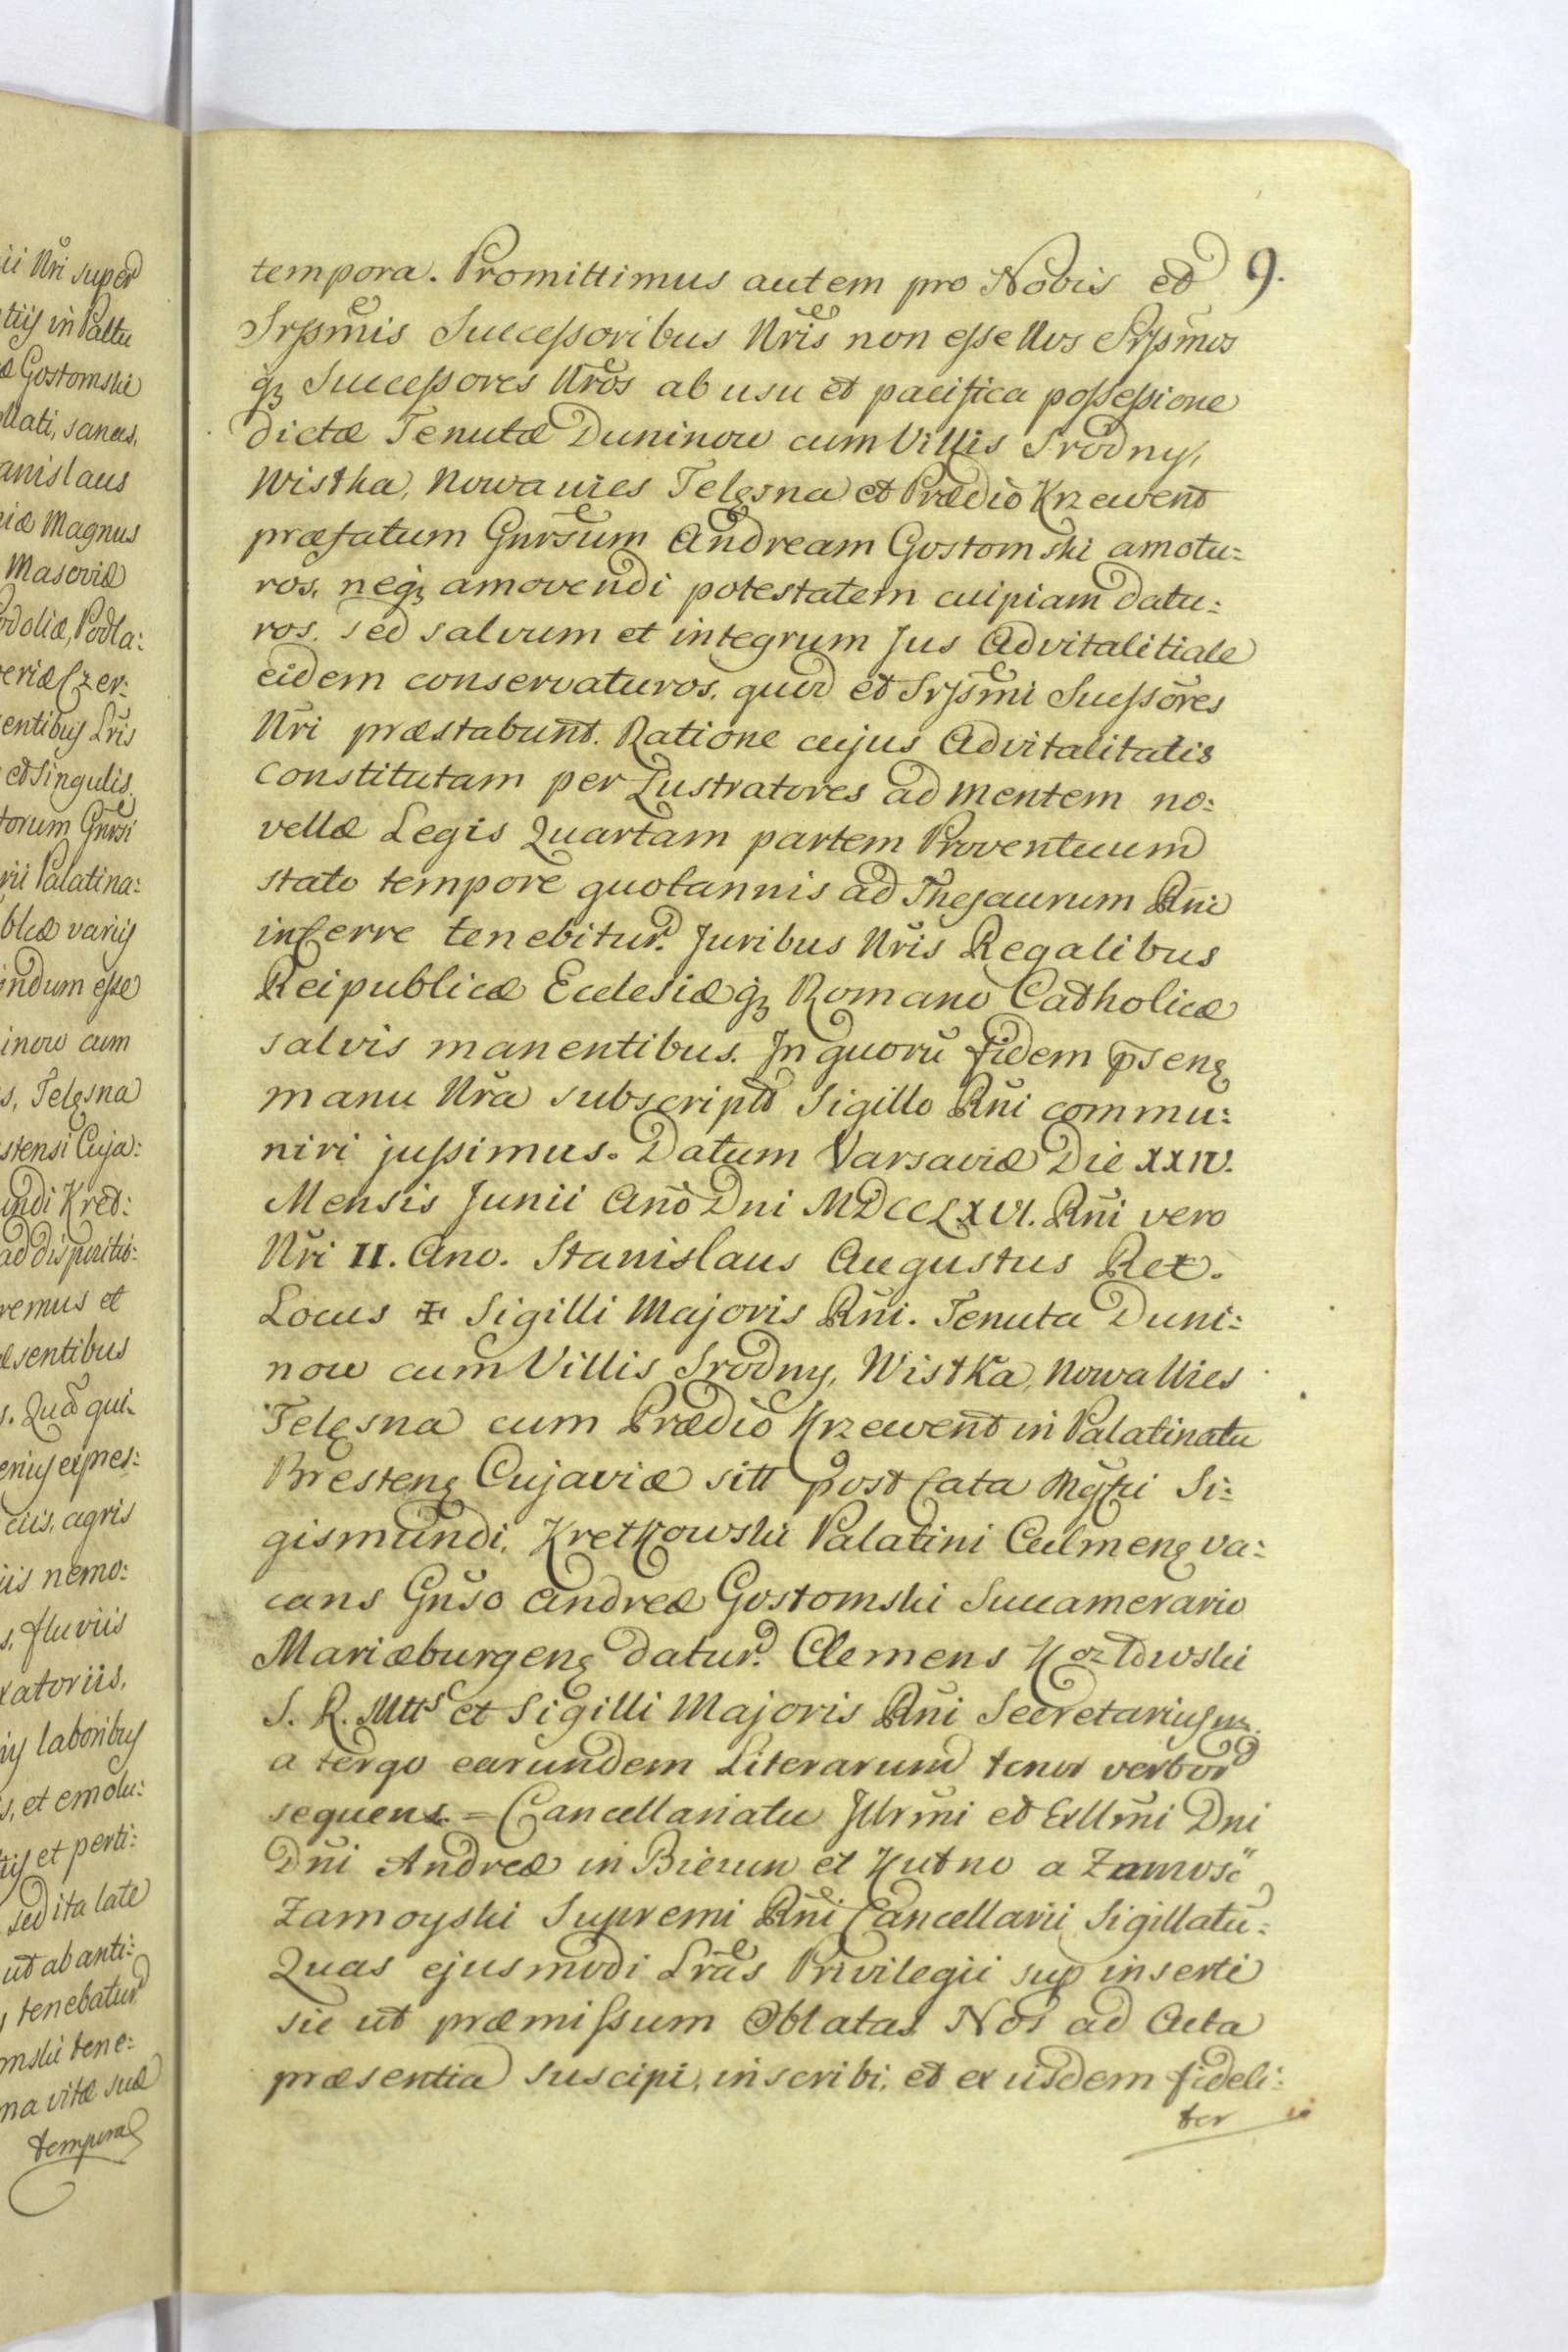 ii Nři super
tiis in Palttu
æ Gostomski
llati, sancis,
anislaus
iæ Magnus
Masoviæ
odoliæ, Podla:
eriæ Czer:
entibus Lřis
et Singulis
torum Gnřsi
rii Palatina:
blicæ variis
indum esse
inow cum
s, Telęsna
stensi Cuja:
undi Kret:
ad disposition:
remus et
æsentibus
s. Quā qui
eius, agris
iis nemo:
s, fluviis
xatoriis,
iis laboribus
s, et emolu:
tiis et perti:
sed ita late
ut ab anti:
s tenebatur
mski tene:
na vitæ suæ
tempora
9.
tempora. Promittimus autem pro Nobis et
Srssmis Successoribus Nřis non esse Nos Srssmos
q₃ Successores Nřos ab usu et pacifica possessione
dictæ Tenutæ Duninow cum Villis Srodny,
Wistka, Nowawies Telęsna et Prædio Krzewent
præfatum Gnřsum Andream Gostomski amotu:
ros, neq₃ amovendi potestatem cuipiam datu:
ros. sed salvum et integrum Jus Advitalitiale
eidem conservaturos, quod et Srssmi Sucssores
Nři præstabunt. Ratione cujus Advitalitatis
constitutam per Lustratores ad mentem no:
vellæ Legis Quartam partem Proventuum
stato tempore quotannis ad Thesaurum Rñi
inferre tenebitur. Juribus Nřis Regalibus
Reipublicæ Ecclesiæq₃ Romano Catholicæ
salvis manentibus. In quorū fidem p̄senę
manu Nřa subscriptɨ Sigillo Rñi commu:
niri jussimus. Datum Varsaviæ Die XXIV.
Mensis Junii Anō Dni MDCCLXVI. Rñi vero
Nři II. Ano. Stanislaus Augustus Rex.
Locus ✠ Sigilli Majoris Rñi. Tenuta Duni:
now cum Villis Srodny, Wistka, Nowa Wies
Telęsna cum Prædio Krzewent in Palatinatu
Brestenę Cujaviæ sitt post fata Mg̃fici Si:
gismundi Kretkowski Palatini Culmenę va:
cans Gnřso Andreæ Gostomski Succamerario
Mariæburgenę datur. Clemens Kozłowski
S. R. Mttis et Sigilli Majoris Rñi Secretarius mp.
a tergo earundem Literarum tenor verbor
sequens = Cancellariatu Illrmi et Exllmi Dni
Dñi Andreæ in Biezun et Kutno a Zamosć
Zamoyski Supremi Rñi Cancellarii Sigillatū:
Quas ejusmodi Lřas Privilegii sup inserti
sic ut præmissum Oblatas Nos ad Acta
præsentia suscipi, inscribi, et ex iisdem fideli:
ter